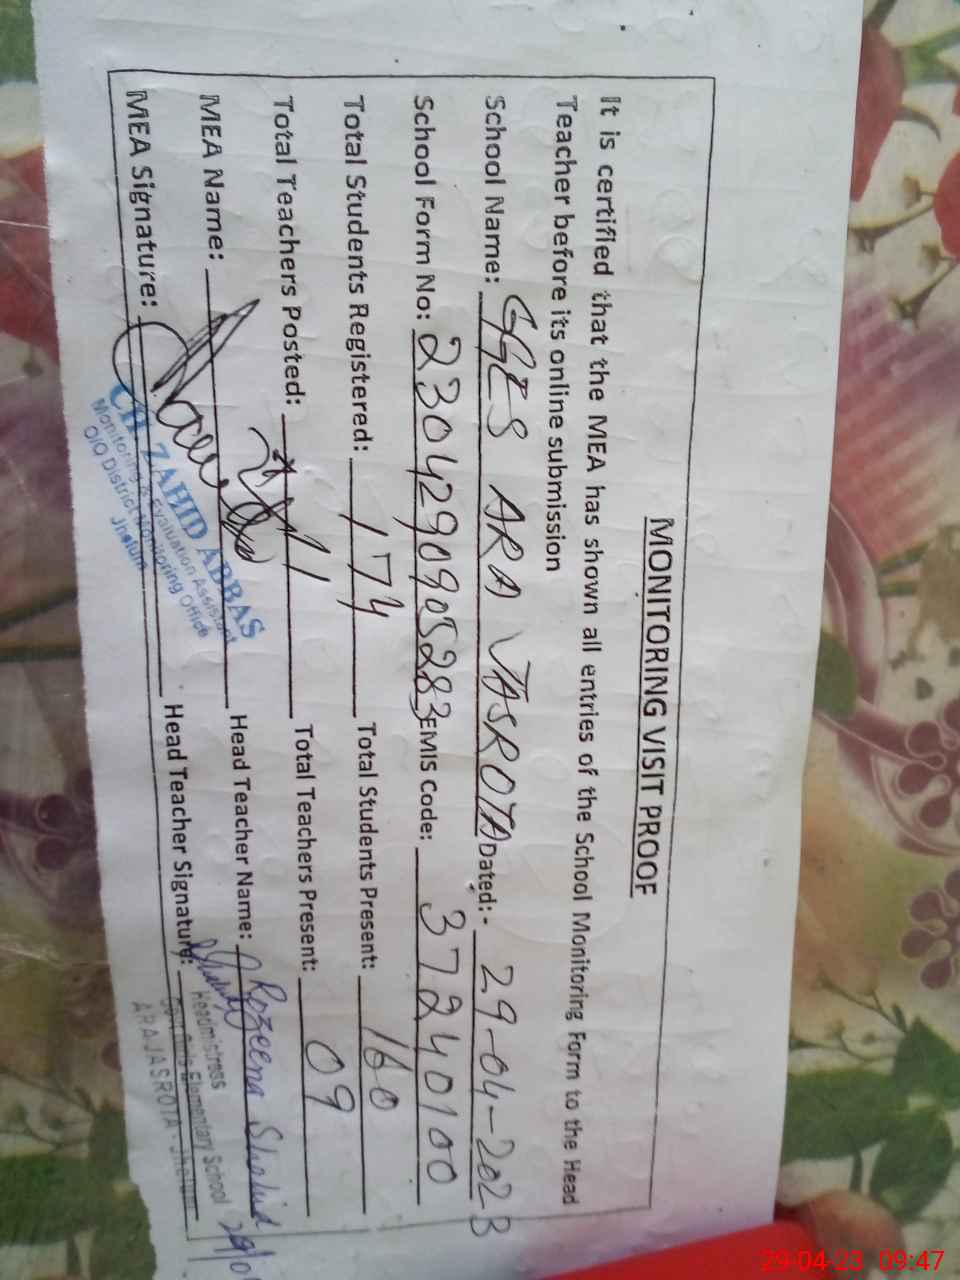 MONITORING VISIT PROOF
It is certified that the MEA has shown all entries of the School Monitoring Form to the Head
Teacher before its online submission
School Name: GGES ARA JASROTA Dated:- 29-04-2023
School Form No: 230429090905283 EMIS Code: 37240100
Total Students Registered: 174 Total Students Present: 160
Total Teachers Posted: 11 Total Teachers Present: 09
MEA Name: Head Teacher Name: Rozeena Shahid
MEA Signature: Head Teacher Signature:
CH. ZAHID ABBAS
Monitoring & Evaluation Assistant
O/O District Monitoring Office
Jhelum
Headmistress
Govt Girls Elementary School
ARA JASROTA - Jhelum
29-04-23 09:47